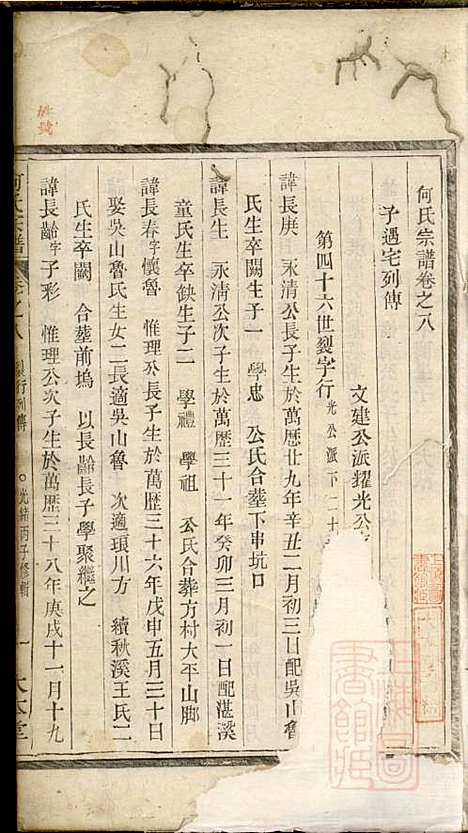 何氏宗譜卷之八
予遇宅列傳
文建公派耀光公
第四十六世裂字行光公派下二十
諱長庚 永淸公長子生於萬歷廿九年辛丑二月初三日配吳山魯
氏生卒闕生子一 學忠 公氏合塟下串坑口
諱長生 永淸公次子生於萬歷三十一年癸卯三月初一日配湛溪
童氏生卒缺生子二 學禮 學祖 公氏合葬方村大平山脚
諱長春字懷魯 惟理公長子生於萬歷三十六年戊申五月三十日
娶吳山魯氏生女二長適吳山魯 次適琅川方 續秋溪王氏二
氏生卒闕 合塟前塢 以長齡長子學聚繼之
諱長齡字子彩 惟理公次子生於萬歷三十八年庚戌十一月十九
何氏宗譜 卷之八 裂行列傳 ○光緒丙子修輯 一 大本堂